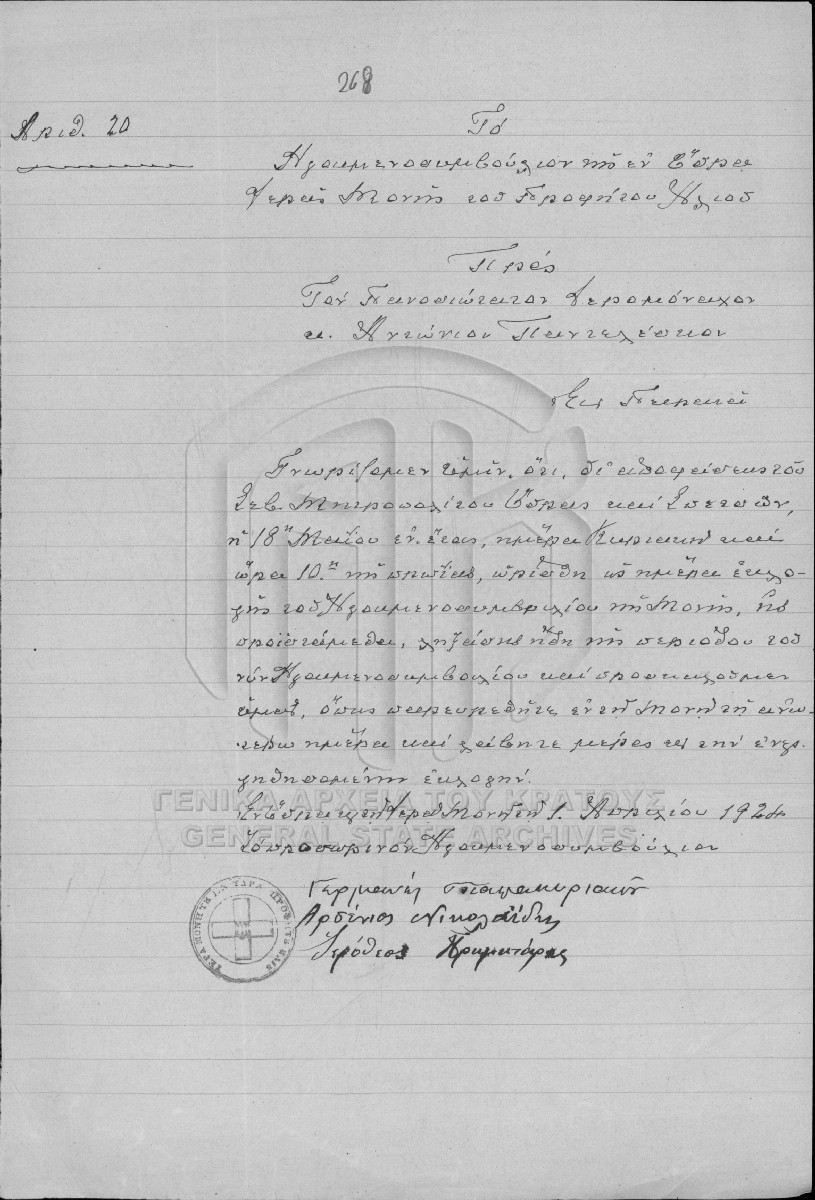 268
Ἀριθ. 20
Τό
Ἡγουμενοσυμβούλιον τῆς ἐν Ὕδρᾳ
Ἱερᾶς Μονῆς τοῦ Προφήτου Ἠλιού
Πρός
Τόν Πανοσιώτατον Ἱερομόναχον
κ. Ἀντώνιον Παντελέσκον
Εἰς Πειραιᾶ
Γνωρίζομεν ὑμῖν, ὅτι, δι' ἀποφάσεως τοῦ
Σεβ. Μητροπολίτου Ὕδρας καί Σπετσῶν,
ἡ 18η Μαΐου ἐν. ἔτους, ἡμέρα Κυριακή καί
ὥρα 10.η τῆς πρωΐας, ὡρίσθη ὡς ἡμέρα ἐκλο-
γῆς τοῦ Ἡγουμενοσυμβουλίου τῆς Μονῆς, ἧς
προϊστάμεθα, ληξάσης ἤδη τῆς περιόδου τοῦ
νῦν Ἡγουμενοσυμβουλίου καί προσκαλοῦμεν
ὑμᾶς, ὅπως παρευρεθῆτε ἐν τῇ Μονῇ τῇ ἀνω-
τέρω ἡμέρᾳ καί λάβητε μέρος εἰς τήν ἐνερ-
γηθησομένην ἐκλογήν.
Ἐν Ὕδρᾳ καί τῇ Ἱερᾷ Μονῇ τῇ 1. Ἀπριλίου 1924
Τό προσωρινόν Ἡγουμενοσυμβούλιον
Γερμανός Παπακυριακοῦ
Ἀρσένιος Νικολαΐδης
Ἱερόθεος
ΓΕΝΙΚΑ ΑΡΧΕΙΑ ΤΟΥ ΚΡΑΤΟΥΣ
GENERAL STATE ARCHIVES